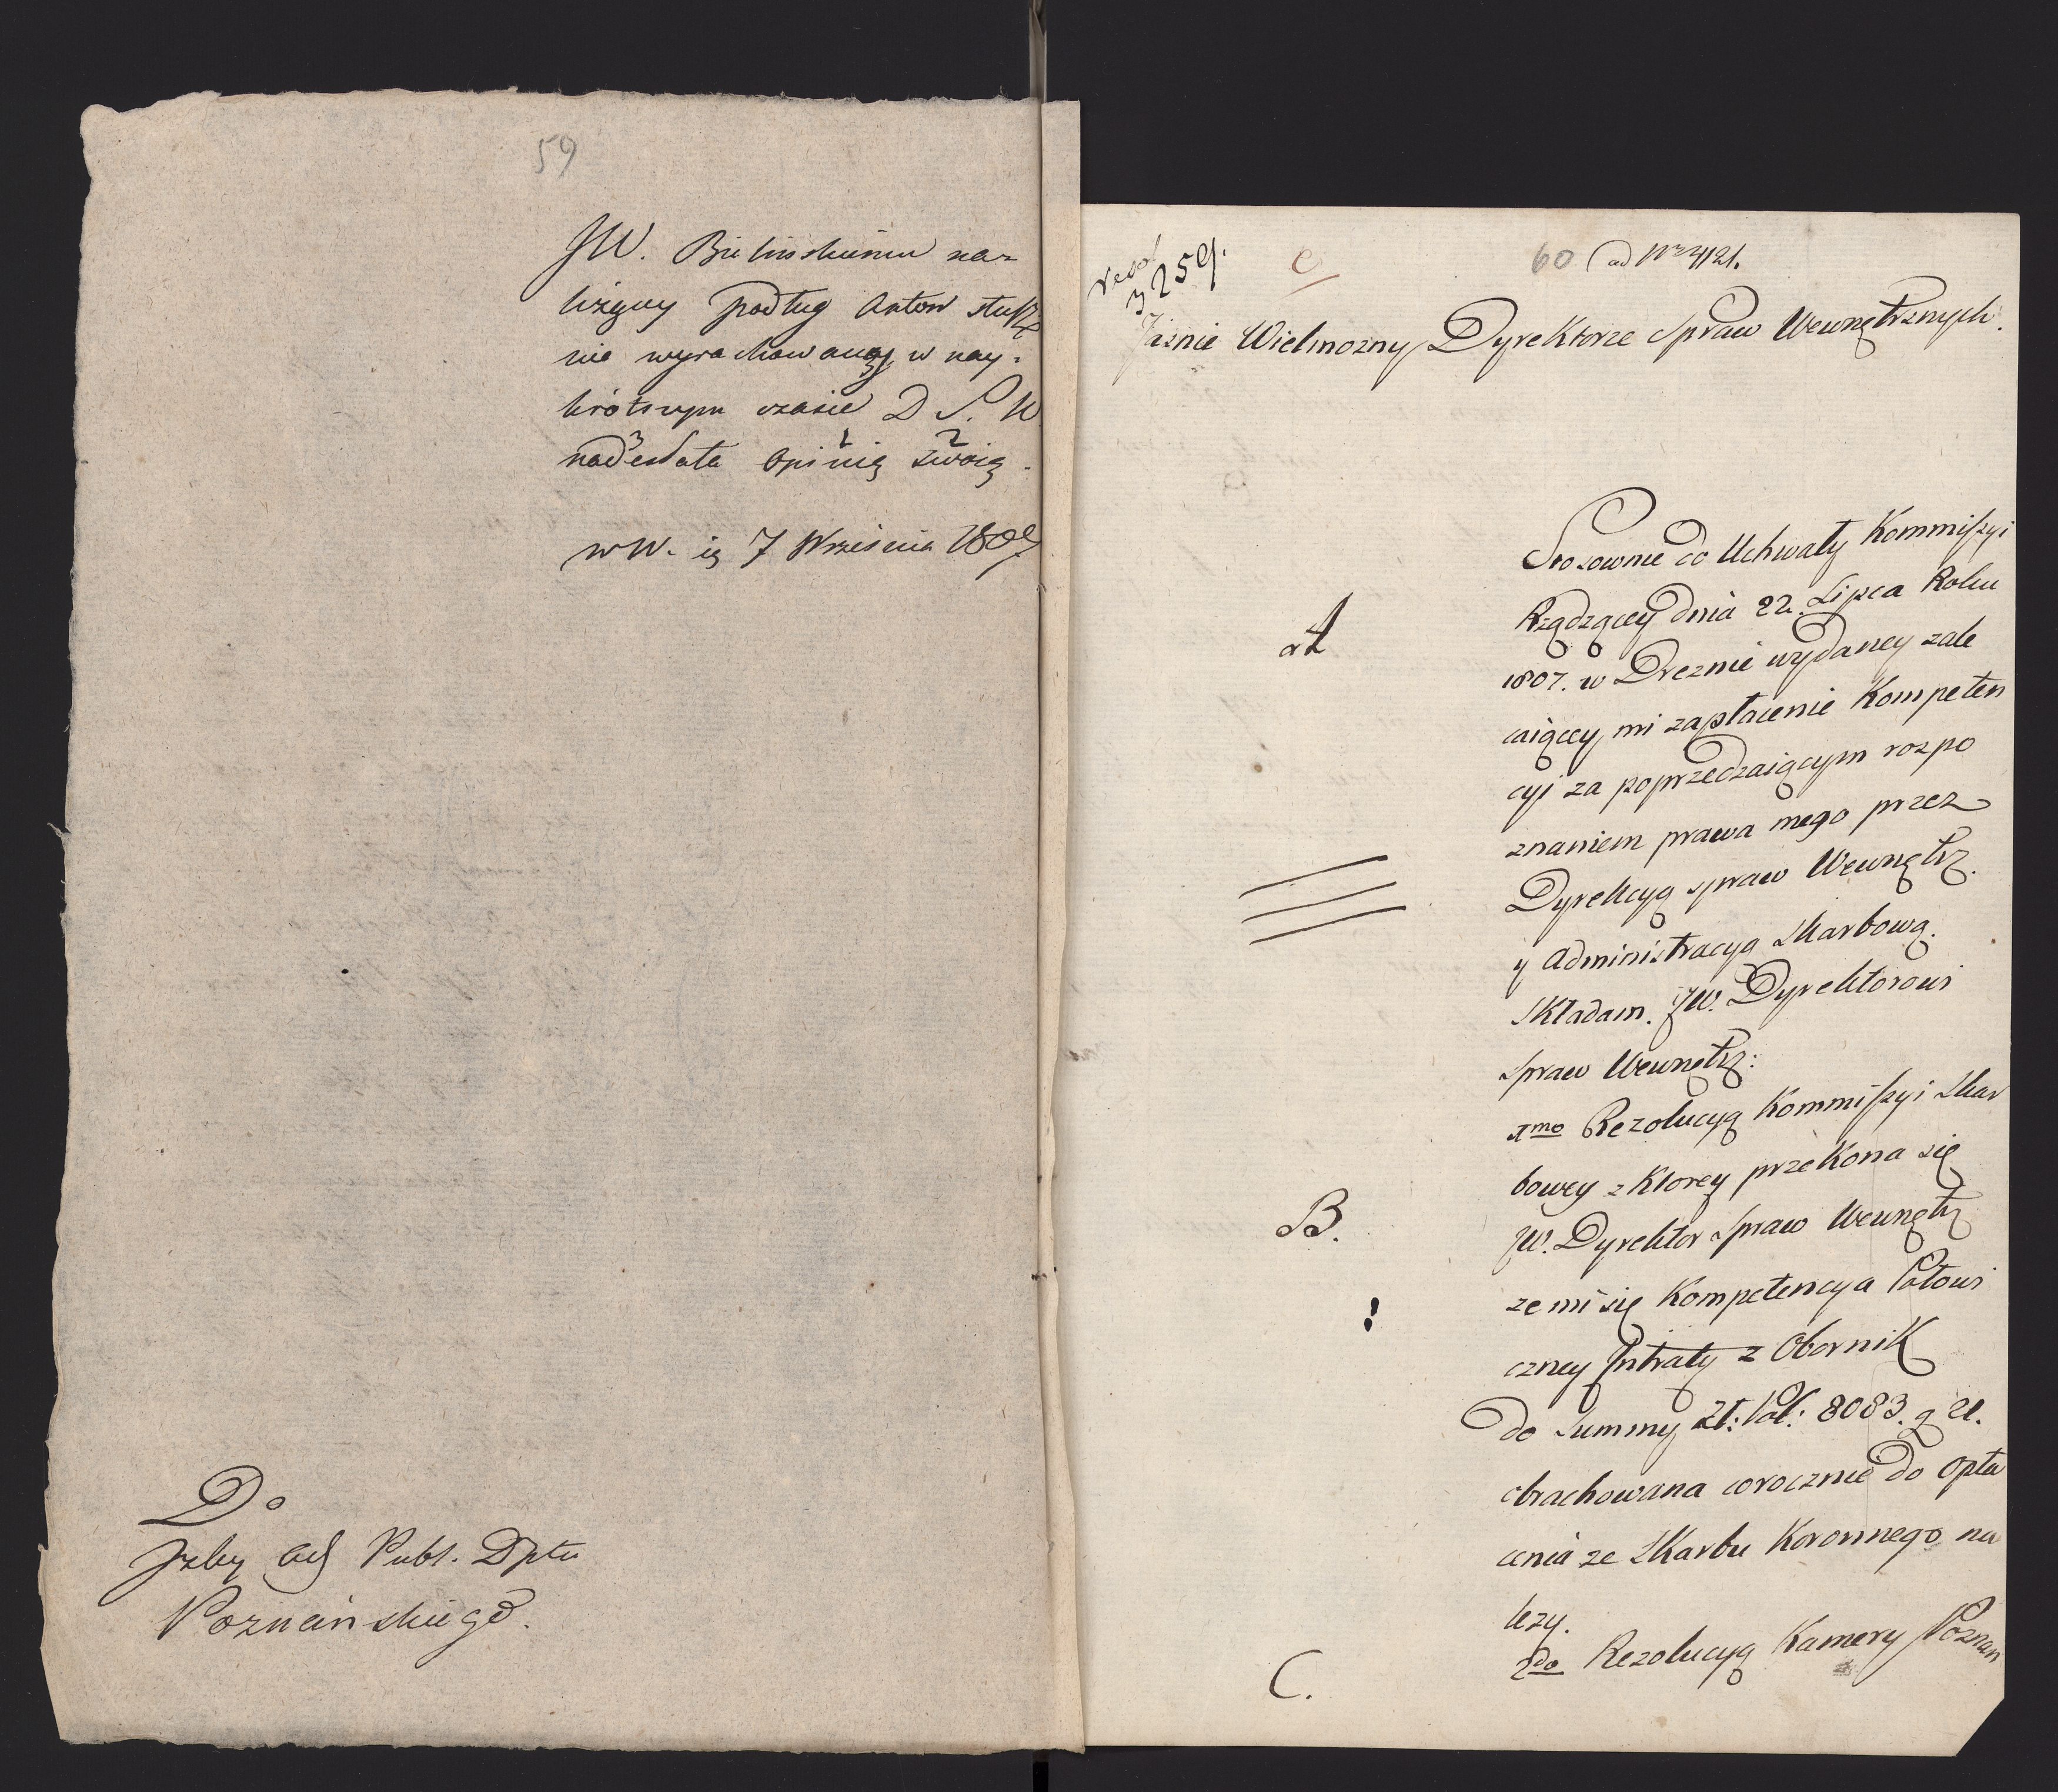 59
JW. Bielinskiemu na-
leżący podług Aktow słusz
nie wyrachowaney w nay-
krótszym czasie D. S. W.
nadesłała opinią swoią.
3 1 2
w W. ią 7 Wrześnià 1807
Do
Jzby Ad Publ. Dptu
Poznańskiego.
3259.
60 ad Nr 4121.
Jaśnie Wielmozny Dyrektorze Spraw Wewnętrznych.
Stosownie do Uchwały Kommissyi
A
Rządzącey dnia 22. Lipca Roku
1807. w Dreznie wydaney zale
caiącey mi zapłacenie Kompeten
cyi za poprzedzaiącym rozpo
znaniem prawa mego przez
Dyrekcyą spraw Wewnętrz.
y Administracyą Skarbową.
Składam JW. Dyrektorowi
Spraw Wewnętrz:
1mo Rezolucyą Kommissyi Skar
bowey z Ktorey przekona się
B.
JW. Dyrektor Spraw Wewnętrz
ze mi się Kompetencya Połowi
czney Jntraty z Obornik
do Summy Zł: Pol: 8083. g 21.
obrachowana corocznie do opła
cenia ze Skarbu Koronnego na
lezy.
2do Rezolucyą Kamery Poznan
C.